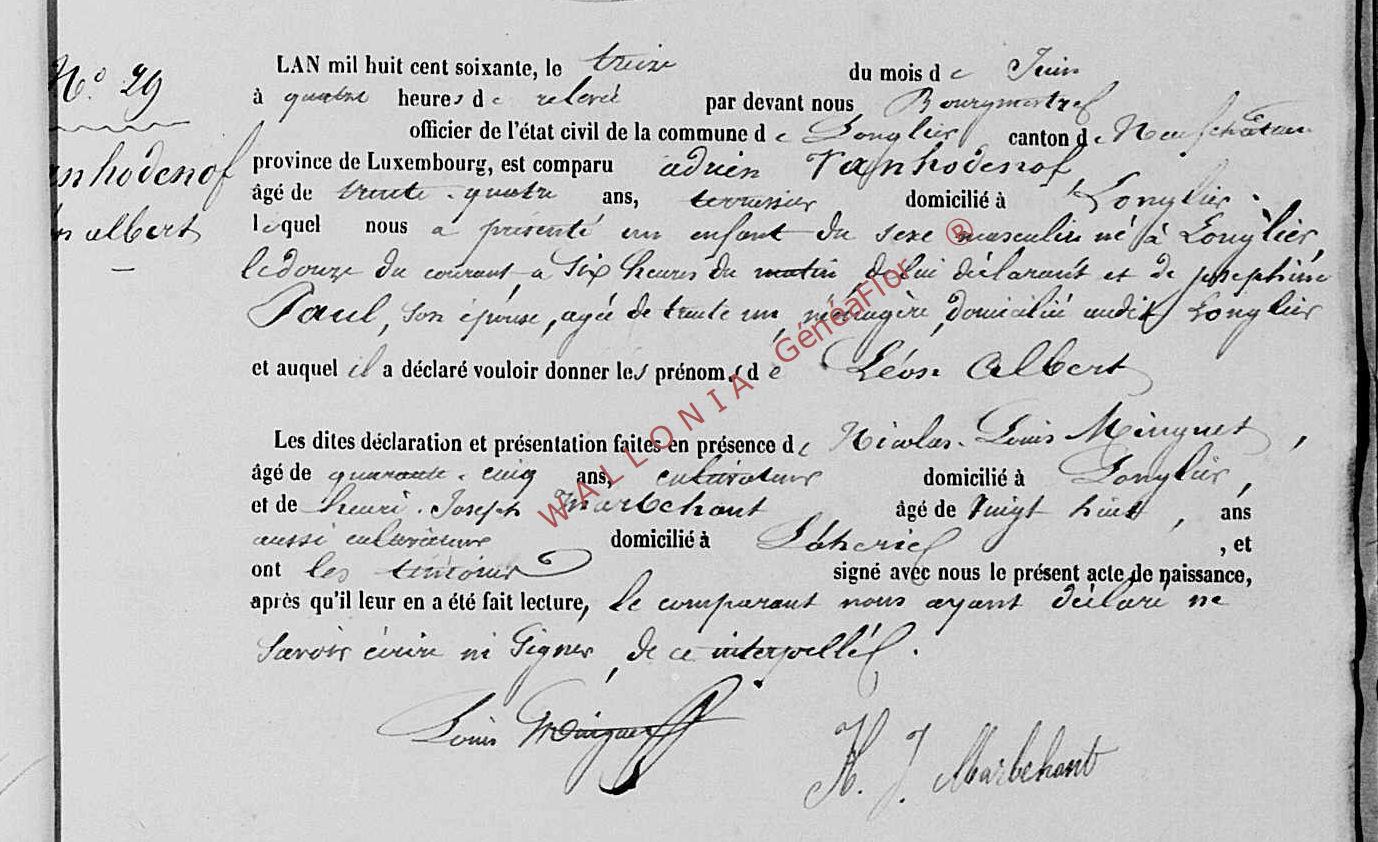 N° 29
anhodenof
albert
LAN mil huit cent soixante, le treize du mois de Juin
à quatre heures de relevée par devant nous Bourgmestre
officier de l'état civil de la commune de Longlier canton de Neufchâteau
province de Luxembourg, est comparu adrien Vanhodenof,
âgé de trente-quatre ans, terrassier domicilié à Longlier.
lequel nous a présenté un enfant du sexe masculin né à Longlier,
le douze du courant, à six heures du matin, de lui déclarant et de josephine
Paul, son épouse, agée de trente un, ménagère, domiciliée audit Longlier
et auquel il a déclaré vouloir donner les prénoms de Léon albert
Les dites déclaration et présentation faites en présence de Nicolas-Louis Minguet,
âgé de quarante-cinq ans, cultivateur domicilié à Longlier,
et de henri-Joseph Marbehant âgé de Vingt huit, ans
aussi cultivateur domicilié à Lahérie, et
ont les témoins signé avec nous le présent acte de naissance,
après qu'il leur en a été fait lecture, le comparant nous ayant déclaré ne
Savoir écrire ni Signer, de ce interpellé.
Louis Minguet
H. J. Marbehant
WALLONIA GénéaFlor ®